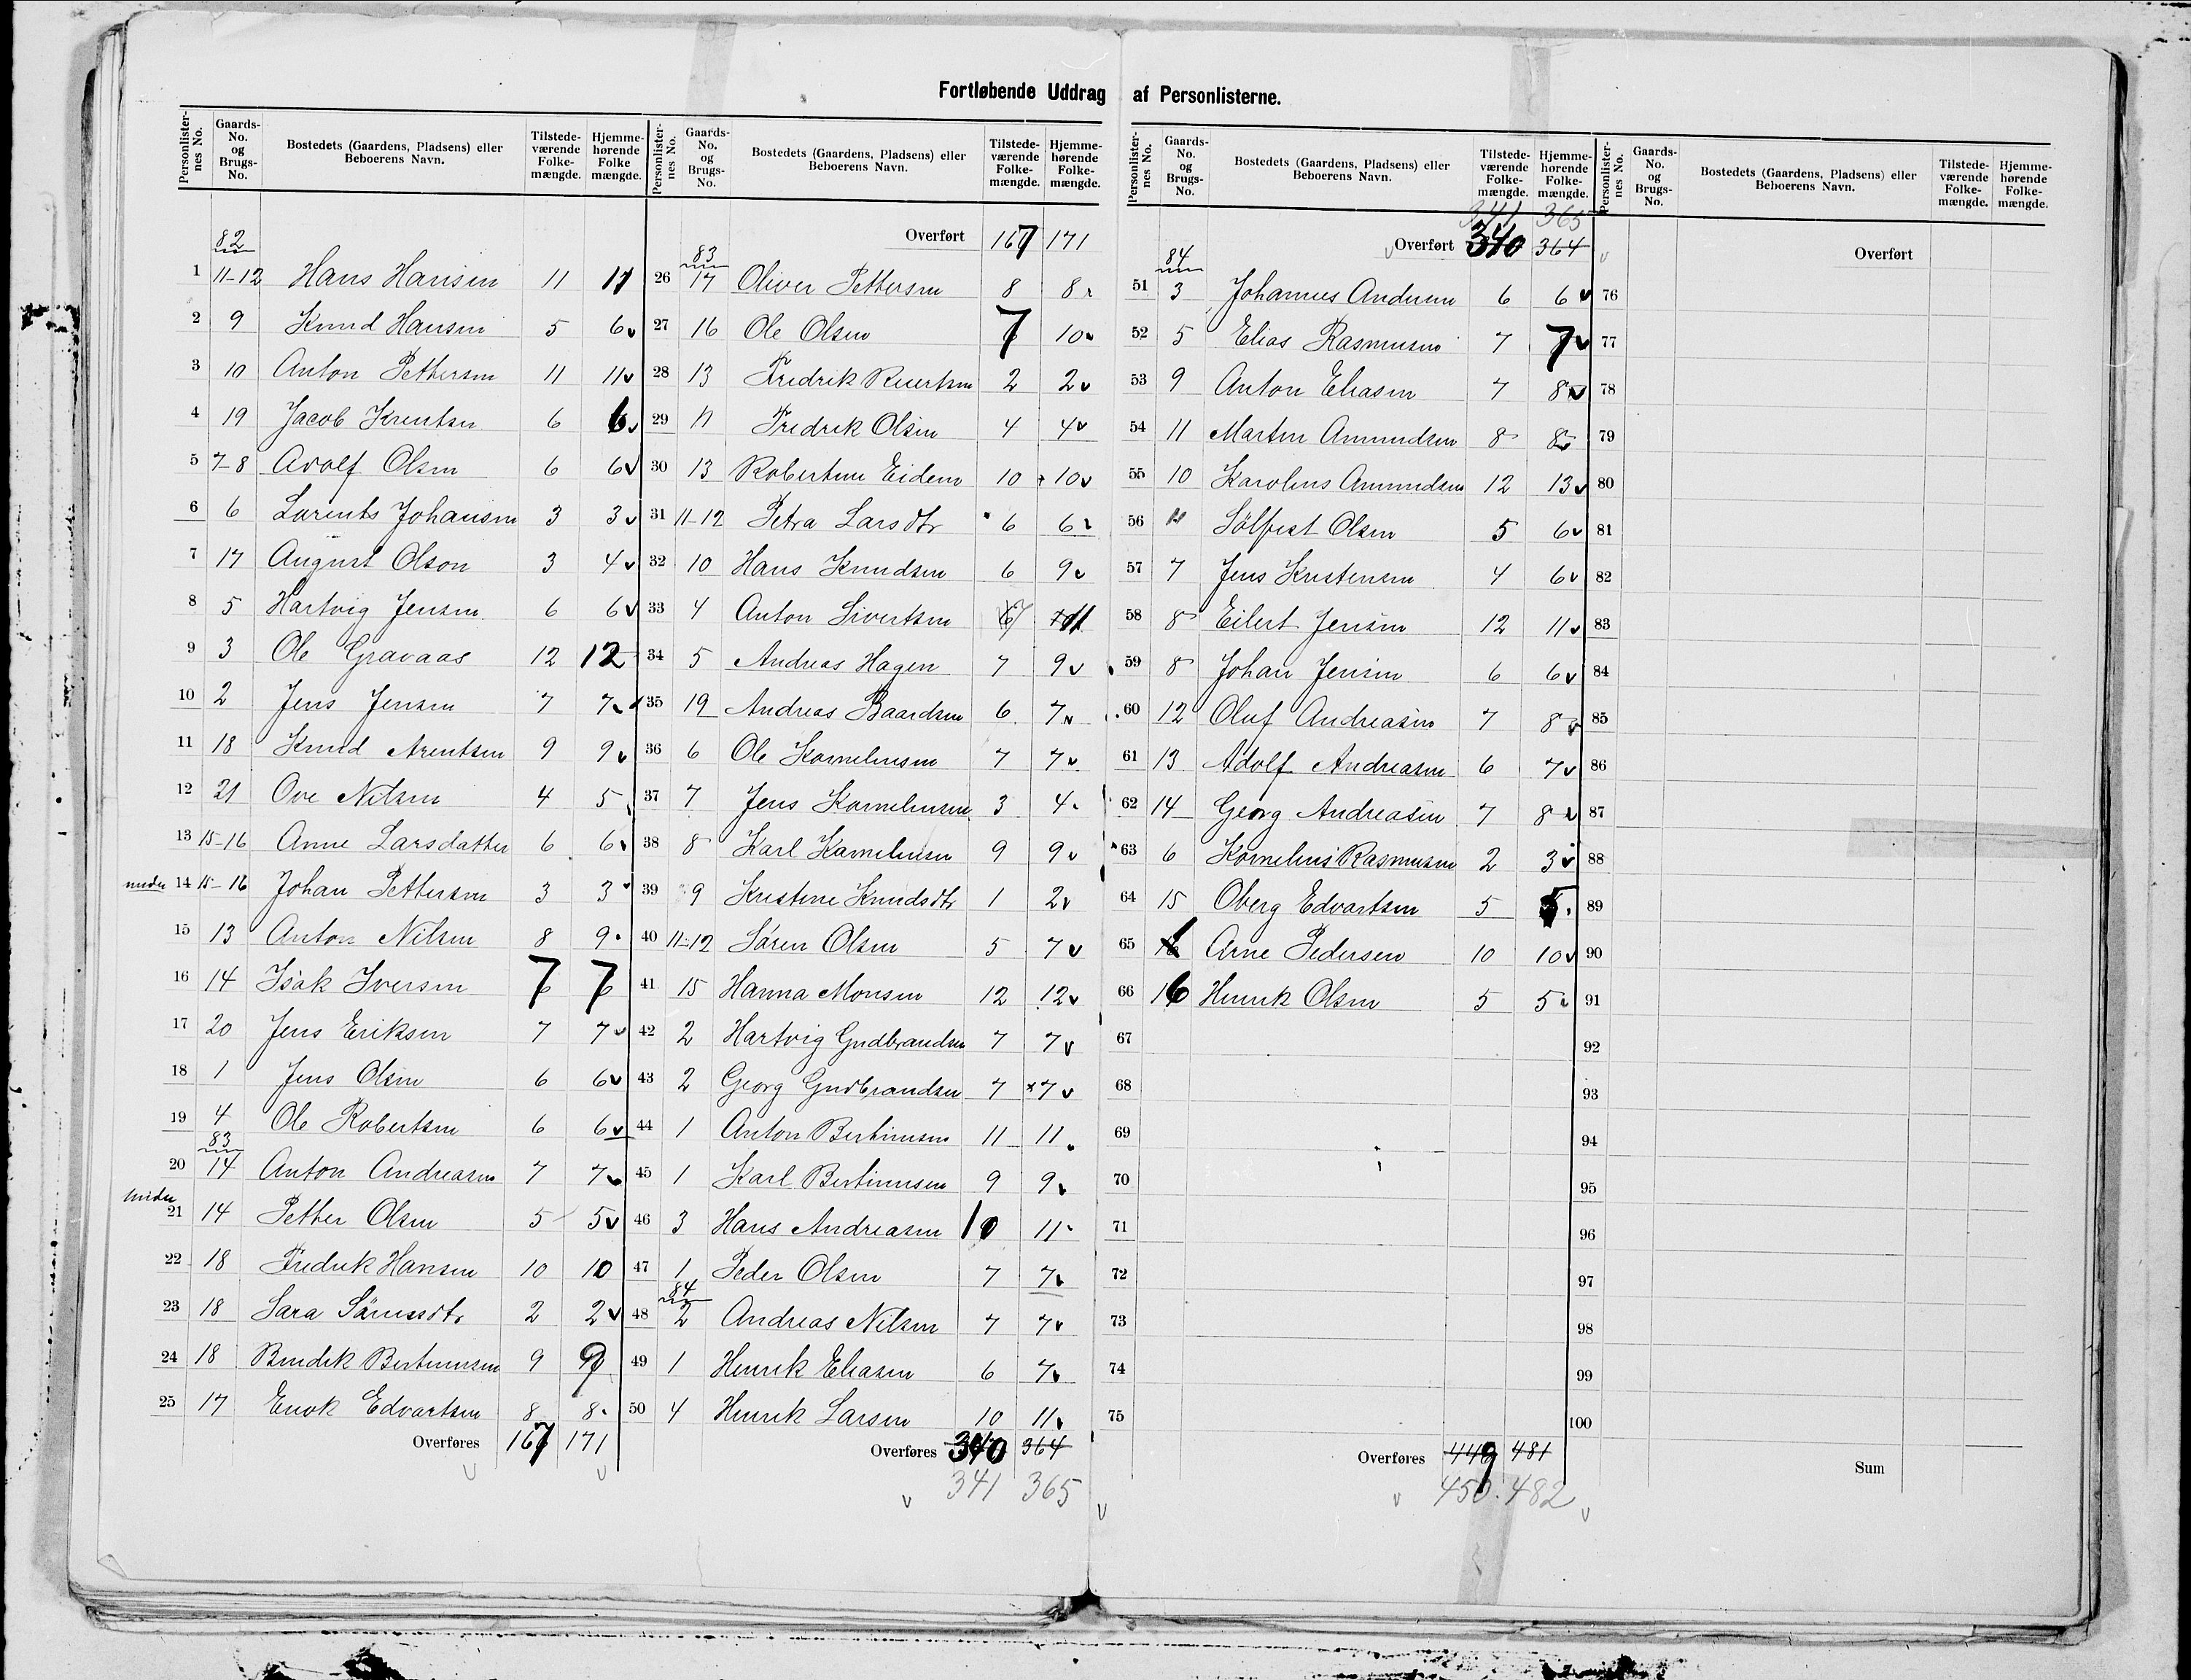 Fortløbende Uddrag af Personlisterne.
Personlisternes No. Gaards-No. og Brugs-No. Bostedets (Gaardens, Pladsens) eller Beboerens Navn. Tilstedeværende Folkemængde. Hjemmehørende Folkemængde.
82
1 11-12 Hans Hansen 11 11
2 9 Knud Hansen 5 6
3 10 Anton Pettersen 11 11
4 19 Jacob Kreutsen 6 6
5 7-8 Adolf Olsen 6 6
6 6 Lorents Johansen 3 3
7 17 August Olson 3 4
8 5 Hartvig Jensen 6 6
9 3 Ole Gravaas 12 12
10 2 Jens Jensen 7 7
11 18 Knud Arentsen 9 9
12 21 Ove Nilsen 4 5
13 15-16 Anne Larsdatter 6 6
14 15-16 Johan Pettersen 3 3
15 13 Anton Nilsen 8 9
16 14 Isak Iversen 7 7
17 20 Jens Eriksen 7 7
18 1 Jens Olsen 6 6
19 4 Ole Robertsen 6 6
83
20 14 Anton Andreasen 7 7
21 14 Petter Olsen 5 5
22 18 Fredrik Hansen 10 10
23 18 Sara Sörensdtr 2 2
24 18 Bendik Bertinussen 9 9
25 17 Enok Edvartsen 8 8
Overføres 167 171
Personlisternes No. Gaards-No. og Brugs-No. Bostedets (Gaardens, Pladsens) eller Beboerens Navn. Tilstedeværende Folkemængde. Hjemmehørende Folkemængde.
Overført 167 171
83
26 17 Oliver Pettersen 8 8
27 16 Ole Olsen 7 10
28 13 Fredrik 2 2
29 11 Fredrik Olsen 4 4
30 13 Robertine Eidem 10 10
31 11-12 Petra Larsdtr 6 6
32 10 Hans Knudsen 6 9
33 4 Anton Sivertsen 7 11
34 5 Andreas Hagen 7 9
35 19 Andreas Baardsen 6 7
36 6 Ole Korneliusen 7 7
37 7 Jens Korneliusen 3 4
38 8 Karl Korneliusen 9 9
39 9 Kristine Knudsdtr 1 2
40 11-12 Sören Olsen 5 7
41 15 Hanna Monsen 12 12
42 2 Hartvig Gudbrandsen 7 7
43 2 Georg Gudbrandsen 7 7
44 1 Anton Bertinusen 11 11
45 1 Karl Bertinusen 9 9
46 3 Hans Andreasen 10 11
47 1 Peder Olsen 7 7
84
48 2 Andreas Nilsen 7 7
49 1 Henrik Eliasen 6 7
50 4 Henrik Larsen 10 11
Overføres 340 364
341 365
Personlisternes No. Gaards-No. og Brugs-No. Bostedets (Gaardens, Pladsens) eller Beboerens Navn. Tilstedeværende Folkemængde. Hjemmehørende Folkemængde.
341 365
Overført 340 364
84
51 3 Johannes Andersen 6 6
52 5 Elias Rasmusen 7 7
53 9 Anton Eliasen 7 8
54 11 Martin Amundsen 8 8
55 10 Karolius Amundsen 12 13
56 Sölfest Olsen 5 6
57 7 Jens Kristensen 4 6
58 8 Eilert Jensen 12 11
59 8 Johan Jensen 6 6
60 12 Oluf Andreasen 7 8
61 13 Adolf Andreasen 6 7
62 14 Georg Andreasen 7 8
63 6 Kornelius Rasmusen 2 3
64 15 Oberg Edvartsen 5 5
65 Arne Pedersen 10 10
66 16 Henrik Olsen 5 5
67
68
69
70
71
72
73
74
75
Overføres 449 481
450 482
Personlisternes No. Gaards-No. og Brugs-No. Bostedets (Gaardens, Pladsens) eller Beboerens Navn. Tilstedeværende Folkemængde. Hjemmehørende Folkemængde.
Overført
76
77
78
79
80
81
82
83
84
85
86
87
88
89
90
91
92
93
94
95
96
97
98
99
100
Sum